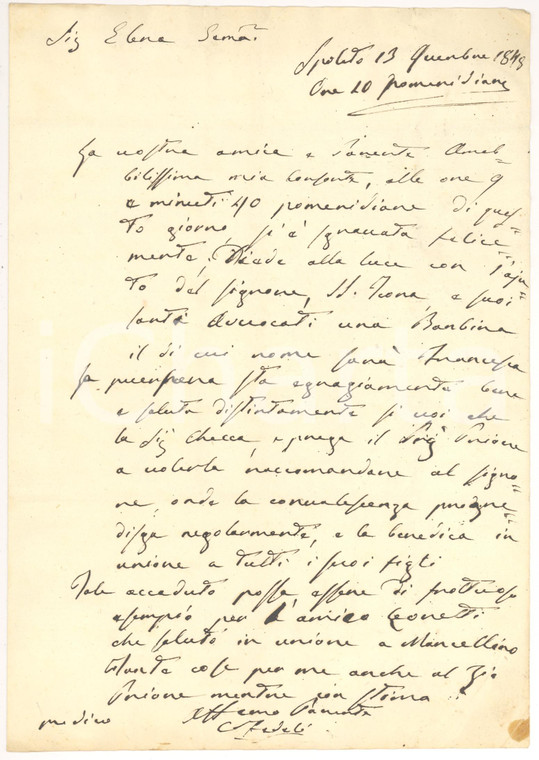 Sig Elena
Spoleto 13 9mbre 1849
Ore 10 pomeridiane
La vostra amica e parente Amab=
bilissima mia Consorte, alle ore 9
e minuti 40 pomeridiane di ques=
to giorno si è sgravata felice=
mente. Diede alla luce con l'aju
to del Signore, e suoi
Santi Avvocati una Bambina
il di cui nome sarà Francesca
La puerpera sta egregiamente bene
e saluta distintamente sì voi che
la Sig Checca, e prega il Priore
a volerla raccomandare al Signo=
re, onde la convalescenza progre=
disca regolarmente, e la benedica in
unione a tutti i suoi figli
Tale accaduto possa essere di fruttuoso
esempio per l'amico Leonetti
che saluto in unione a Marcellino
tante cose per me anche al Zio
Priore mentre con stima
Affmo Parente
medico Fedeli